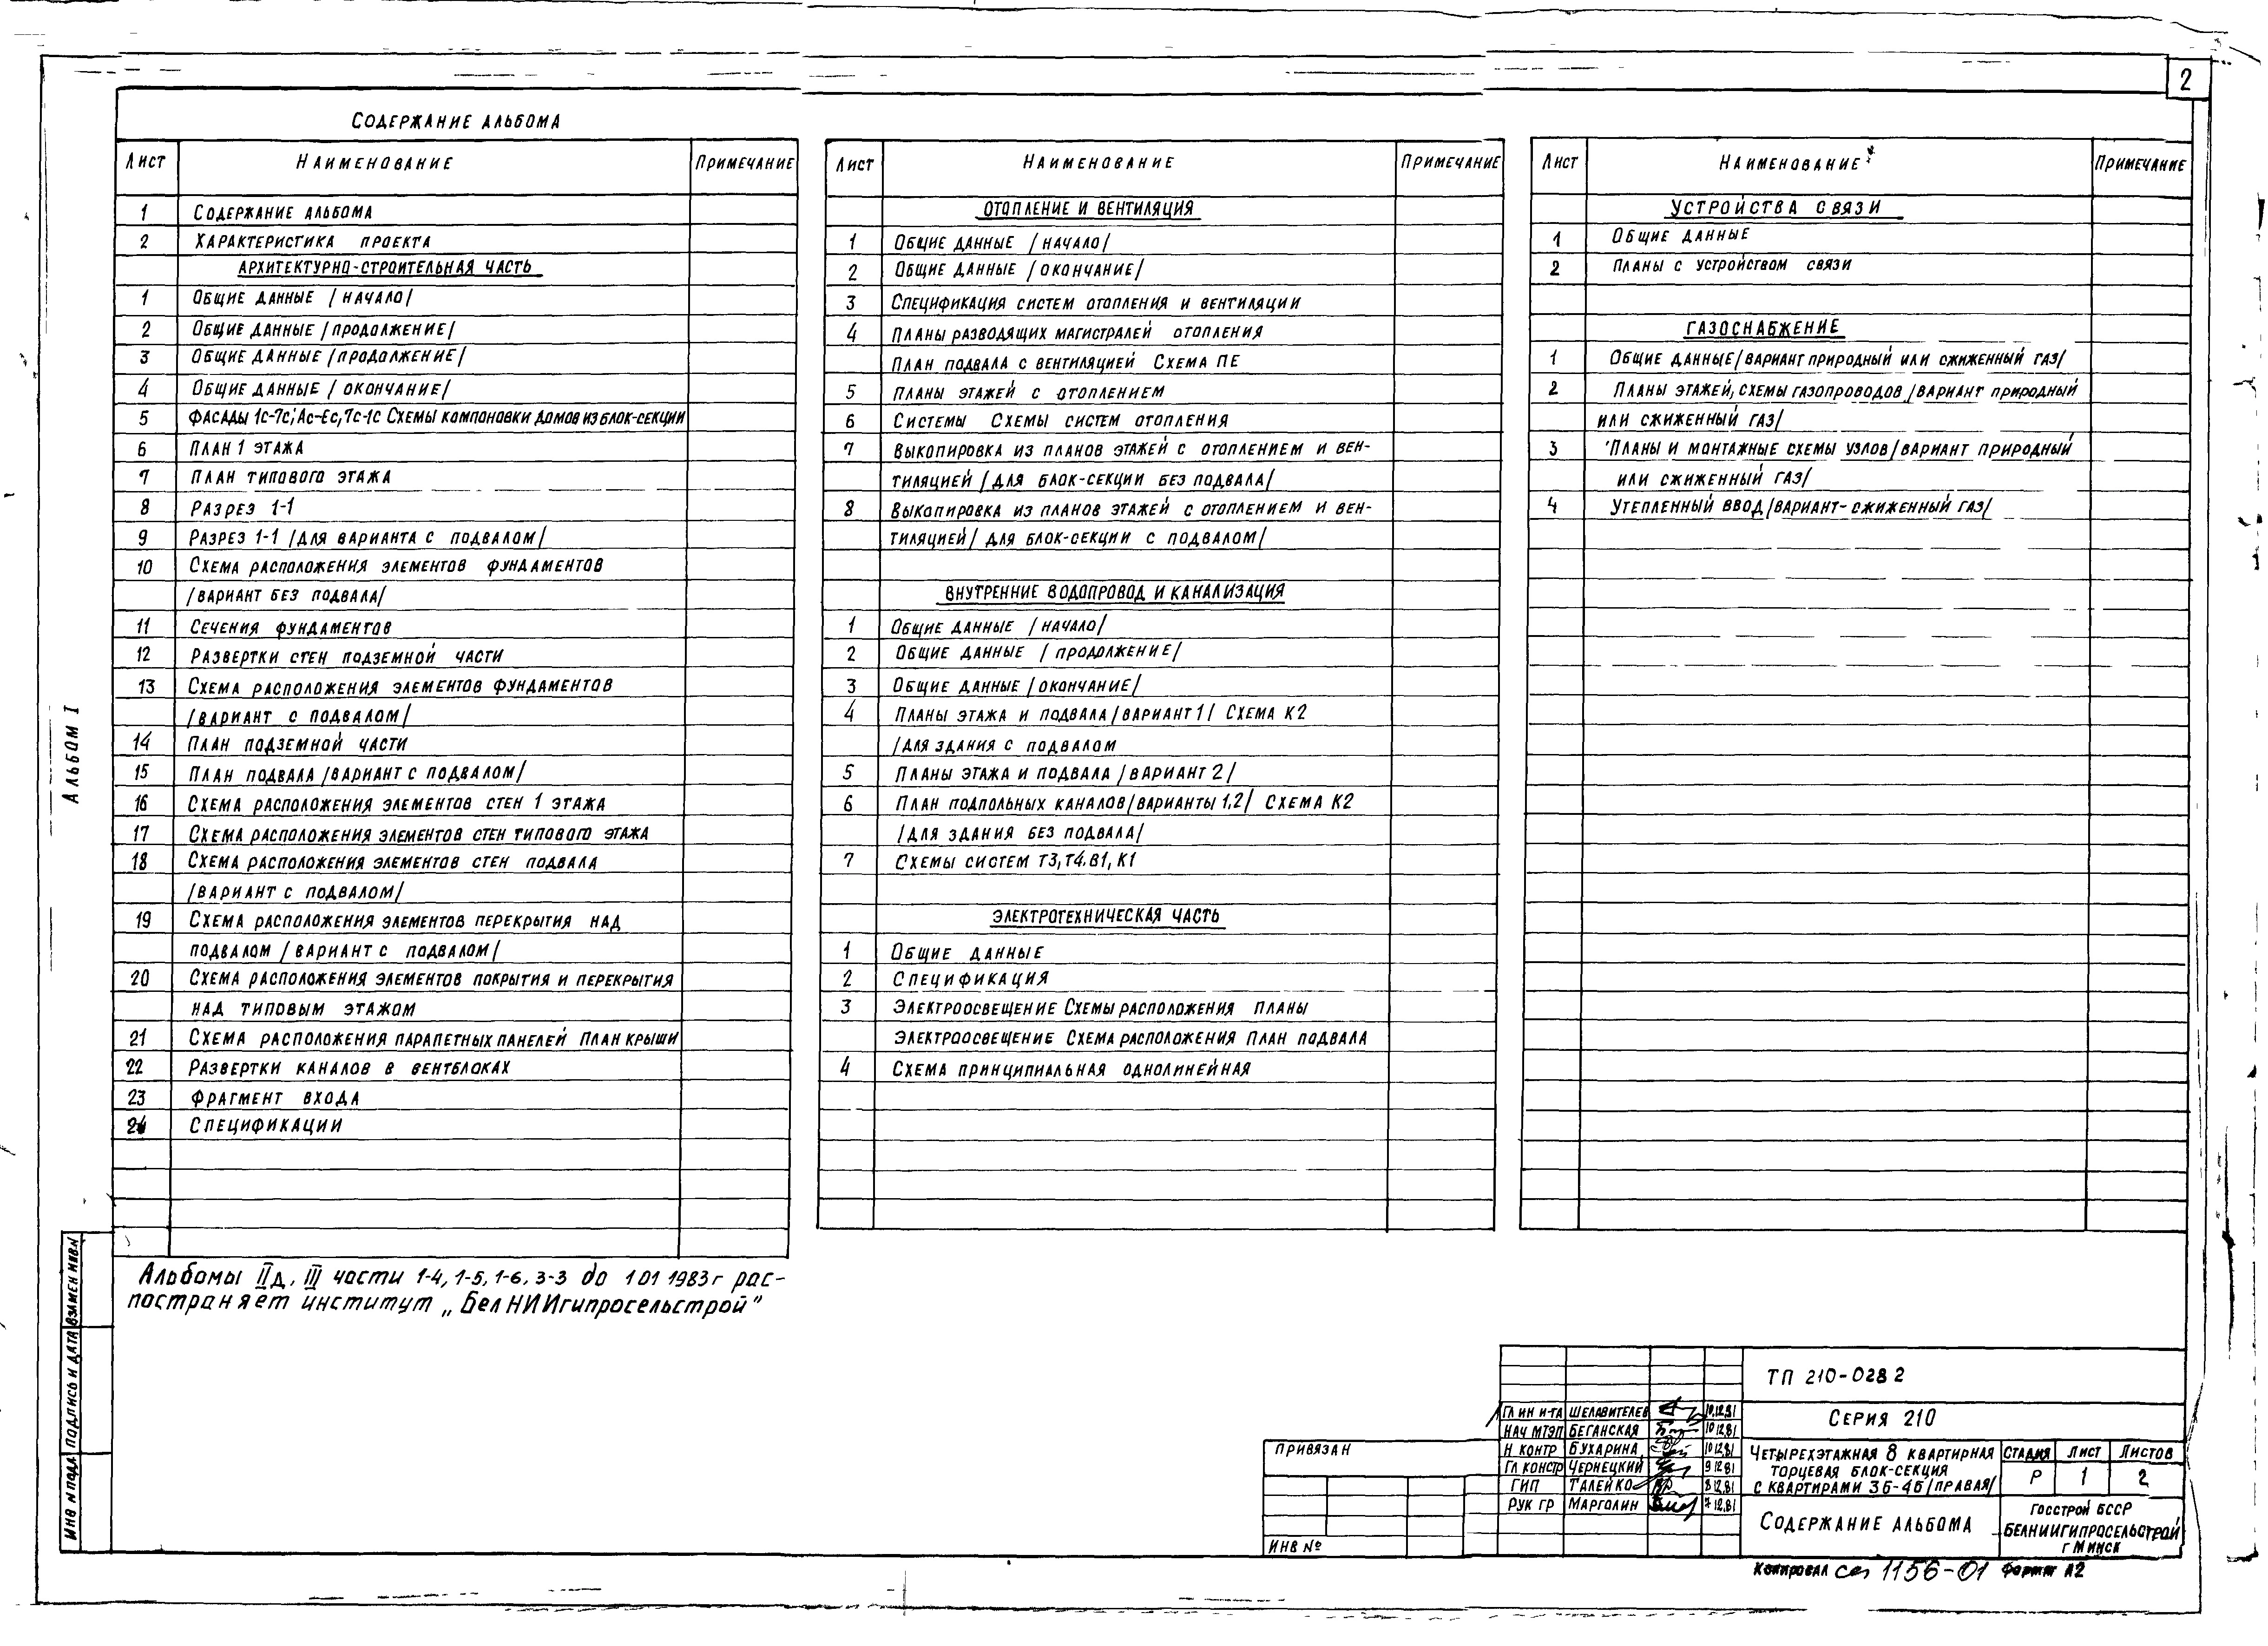 2
СОДЕРЖАНИЕ АЛЬБОМА
ЛИСТ НАИМЕНОВАНИЕ ПРИМЕЧАНИЕ
1 СОДЕРЖАНИЕ АЛЬБОМА
2 ХАРАКТЕРИСТИКА ПРОЕКТА
АРХИТЕКТУРНО-СТРОИТЕЛЬНАЯ ЧАСТЬ
1 ОБЩИЕ ДАННЫЕ /НАЧАЛО/
2 ОБЩИЕ ДАННЫЕ /ПРОДОЛЖЕНИЕ/
3 ОБЩИЕ ДАННЫЕ /ПРОДОЛЖЕНИЕ/
4 ОБЩИЕ ДАННЫЕ /ОКОНЧАНИЕ/
5 ФАСАДЫ 1С-7С, АС-ЕС, 7С-1С СХЕМЫ КОМПОНОВКИ ДОМОВ ИЗ БЛОК-СЕКЦИИ
6 ПЛАН 1 ЭТАЖА
7 ПЛАН ТИПОВОГО ЭТАЖА
8 РАЗРЕЗ 1-1
9 РАЗРЕЗ 1-1 /ДЛЯ ВАРИАНТА С ПОДВАЛОМ/
10 СХЕМА РАСПОЛОЖЕНИЯ ЭЛЕМЕНТОВ ФУНДАМЕНТОВ
/ВАРИАНТ БЕЗ ПОДВАЛА/
11 СЕЧЕНИЯ ФУНДАМЕНТОВ
12 РАЗВЕРТКИ СТЕН ПОДЗЕМНОЙ ЧАСТИ
13 СХЕМА РАСПОЛОЖЕНИЯ ЭЛЕМЕНТОВ ФУНДАМЕНТОВ
/ВАРИАНТ С ПОДВАЛОМ/
14 ПЛАН ПОДЗЕМНОЙ ЧАСТИ
15 ПЛАН ПОДВАЛА /ВАРИАНТ С ПОДВАЛОМ/
16 СХЕМА РАСПОЛОЖЕНИЯ ЭЛЕМЕНТОВ СТЕН 1 ЭТАЖА
17 СХЕМА РАСПОЛОЖЕНИЯ ЭЛЕМЕНТОВ СТЕН ТИПОВОГО ЭТАЖА
18 СХЕМА РАСПОЛОЖЕНИЯ ЭЛЕМЕНТОВ СТЕН ПОДВАЛА
/ВАРИАНТ С ПОДВАЛОМ/
19 СХЕМА РАСПОЛОЖЕНИЯ ЭЛЕМЕНТОВ ПЕРЕКРЫТИЯ НАД
ПОДВАЛОМ /ВАРИАНТ С ПОДВАЛОМ/
20 СХЕМА РАСПОЛОЖЕНИЯ ЭЛЕМЕНТОВ ПОКРЫТИЯ И ПЕРЕКРЫТИЯ
НАД ТИПОВЫМ ЭТАЖОМ
21 СХЕМА РАСПОЛОЖЕНИЯ ПАРАПЕТНЫХ ПАНЕЛЕЙ ПЛАН КРЫШИ
22 РАЗВЕРТКИ КАНАЛОВ В ВЕНТБЛОКАХ
23 ФРАГМЕНТ ВХОДА
24 СПЕЦИФИКАЦИИ
Альбомы IIд, III части 1-4, 1-5, 1-6, 3-3 до 1 01 1983г рас-
пространяет институт „БелНИИгипросельстрой"
ЛИСТ НАИМЕНОВАНИЕ ПРИМЕЧАНИЕ
ОТОПЛЕНИЕ И ВЕНТИЛЯЦИЯ
1 ОБЩИЕ ДАННЫЕ /НАЧАЛО/
2 ОБЩИЕ ДАННЫЕ /ОКОНЧАНИЕ/
3 СПЕЦИФИКАЦИЯ СИСТЕМ ОТОПЛЕНИЯ И ВЕНТИЛЯЦИИ
4 ПЛАНЫ РАЗВОДЯЩИХ МАГИСТРАЛЕЙ ОТОПЛЕНИЯ
ПЛАН ПОДВАЛА С ВЕНТИЛЯЦИЕЙ СХЕМА ПЕ
5 ПЛАНЫ ЭТАЖЕЙ С ОТОПЛЕНИЕМ
6 СИСТЕМЫ СХЕМЫ СИСТЕМ ОТОПЛЕНИЯ
7 ВЫКОПИРОВКА ИЗ ПЛАНОВ ЭТАЖЕЙ С ОТОПЛЕНИЕМ И ВЕН-
ТИЛЯЦИЕЙ /ДЛЯ БЛОК-СЕКЦИИ БЕЗ ПОДВАЛА/
8 ВЫКОПИРОВКА ИЗ ПЛАНОВ ЭТАЖЕЙ С ОТОПЛЕНИЕМ И ВЕН-
ТИЛЯЦИЕЙ /ДЛЯ БЛОК-СЕКЦИИ С ПОДВАЛОМ/
ВНУТРЕННИЕ ВОДОПРОВОД И КАНАЛИЗАЦИЯ
1 ОБЩИЕ ДАННЫЕ /НАЧАЛО/
2 ОБЩИЕ ДАННЫЕ /ПРОДОЛЖЕНИЕ/
3 ОБЩИЕ ДАННЫЕ /ОКОНЧАНИЕ/
4 ПЛАНЫ ЭТАЖА И ПОДВАЛА /ВАРИАНТ 1/ СХЕМА К2
/ДЛЯ ЗДАНИЯ С ПОДВАЛОМ
5 ПЛАНЫ ЭТАЖА И ПОДВАЛА /ВАРИАНТ 2/
6 ПЛАН ПОДПОЛЬНЫХ КАНАЛОВ /ВАРИАНТЫ 1,2/ СХЕМА К2
/ДЛЯ ЗДАНИЯ БЕЗ ПОДВАЛА/
7 СХЕМЫ СИСТЕМ Т3, Т4, В1, К1
ЭЛЕКТРОТЕХНИЧЕСКАЯ ЧАСТЬ
1 ОБЩИЕ ДАННЫЕ
2 СПЕЦИФИКАЦИЯ
3 ЭЛЕКТРООСВЕЩЕНИЕ СХЕМЫ РАСПОЛОЖЕНИЯ ПЛАНЫ
ЭЛЕКТРООСВЕЩЕНИЕ СХЕМА РАСПОЛОЖЕНИЯ ПЛАН ПОДВАЛА
4 СХЕМА ПРИНЦИПИАЛЬНАЯ ОДНОЛИНЕЙНАЯ
ЛИСТ НАИМЕНОВАНИЕ ПРИМЕЧАНИЕ
УСТРОЙСТВА СВЯЗИ
1 ОБЩИЕ ДАННЫЕ
2 ПЛАНЫ С УСТРОЙСТВОМ СВЯЗИ
ГАЗОСНАБЖЕНИЕ
1 ОБЩИЕ ДАННЫЕ /ВАРИАНТ ПРИРОДНЫЙ ИЛИ СЖИЖЕННЫЙ ГАЗ/
2 ПЛАНЫ ЭТАЖЕЙ, СХЕМЫ ГАЗОПРОВОДОВ /ВАРИАНТ ПРИРОДНЫЙ
ИЛИ СЖИЖЕННЫЙ ГАЗ/
3 ПЛАНЫ И МОНТАЖНЫЕ СХЕМЫ УЗЛОВ /ВАРИАНТ ПРИРОДНЫЙ
ИЛИ СЖИЖЕННЫЙ ГАЗ/
4 УТЕПЛЕННЫЙ ВВОД /ВАРИАНТ-СЖИЖЕННЫЙ ГАЗ/
АЛЬБОМ I
ВЗАМЕН ИНВ.N
ПОДПИСЬ И ДАТА
ИНВ N ПОДЛ
ПРИВЯЗАН
ИНВ №
ГЛ ИН И-ТА ШЕЛАВИТЕЛЕВ 10.12.81
НАЧ МТЭП БЕГАНСКАЯ 10 12.81
Н КОНТР БУХАРИНА 10 12.81
ГЛ КОНСТР ЧЕРНЕЦКИЙ 9 12 81
ГИП ТАЛЕЙКО 8 12.81
РУК ГР МАРГОЛИН 7 12.81
ТП 210-028 2
СЕРИЯ 210
ЧЕТЫРЕХЭТАЖНАЯ 8 КВАРТИРНАЯ
ТОРЦЕВАЯ БЛОК-СЕКЦИЯ
С КВАРТИРАМИ 3Б-4Б /ПРАВАЯ/
СТАДИЯ ЛИСТ ЛИСТОВ
Р 1 2
СОДЕРЖАНИЕ АЛЬБОМА
ГОССТРОЙ БССР
БЕЛНИИГИПРОСЕЛЬСТРОЙ
Г МИНСК
Копировал 1156-01 Формат А2